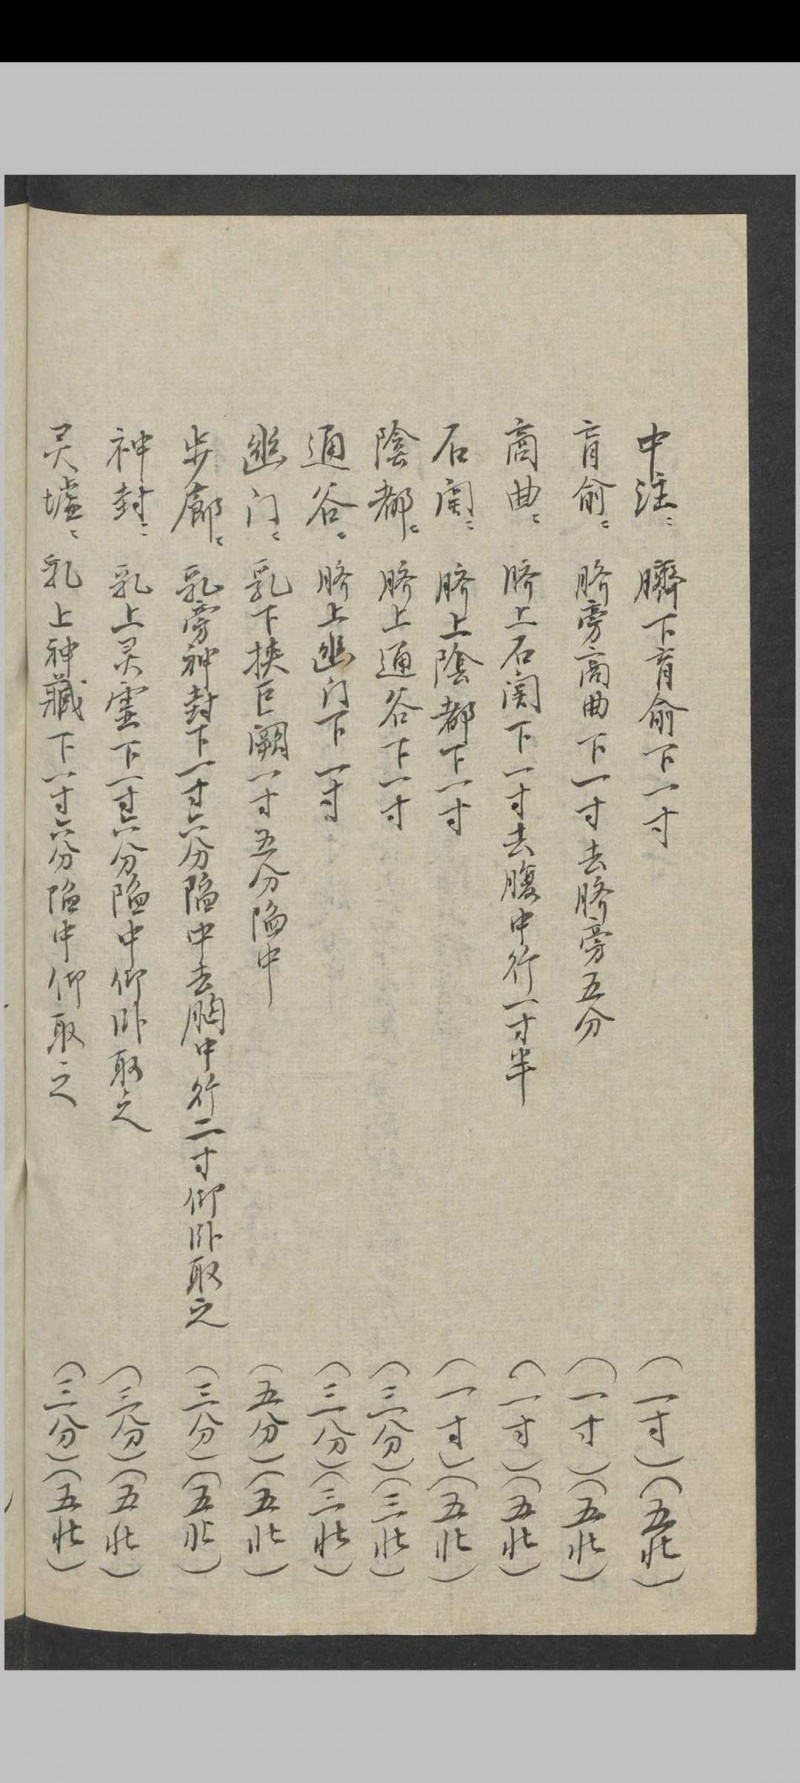 中注〻 臍下肓俞下一寸 (一寸)(五壮)
肓俞〻 脐旁商曲下一寸去脐旁五分 (一寸)(五壮)
商曲〻 脐上石関下一寸去腹中行一寸半 (一寸)(五壮)
石関〻 脐上陰都下一寸 (一寸)(五壮)
陰都〻 脐上通谷下一寸 (三分)(三壮)
通谷〻 脐上幽门下一寸 (三分)(三壮)
幽门〻 乳下挾巨闕一寸五分陷中 (五分)(五壮)
步廊〻 乳旁神封下一寸六分陷中去胸中行二寸仰卧取之 (三分)(五壮)
神封〻 乳上灵虚下一寸六分陷中仰卧取之 (三分)(五壮)
灵墟〻 乳上神藏下一寸六分陷中仰取之 (三分)(五壮)